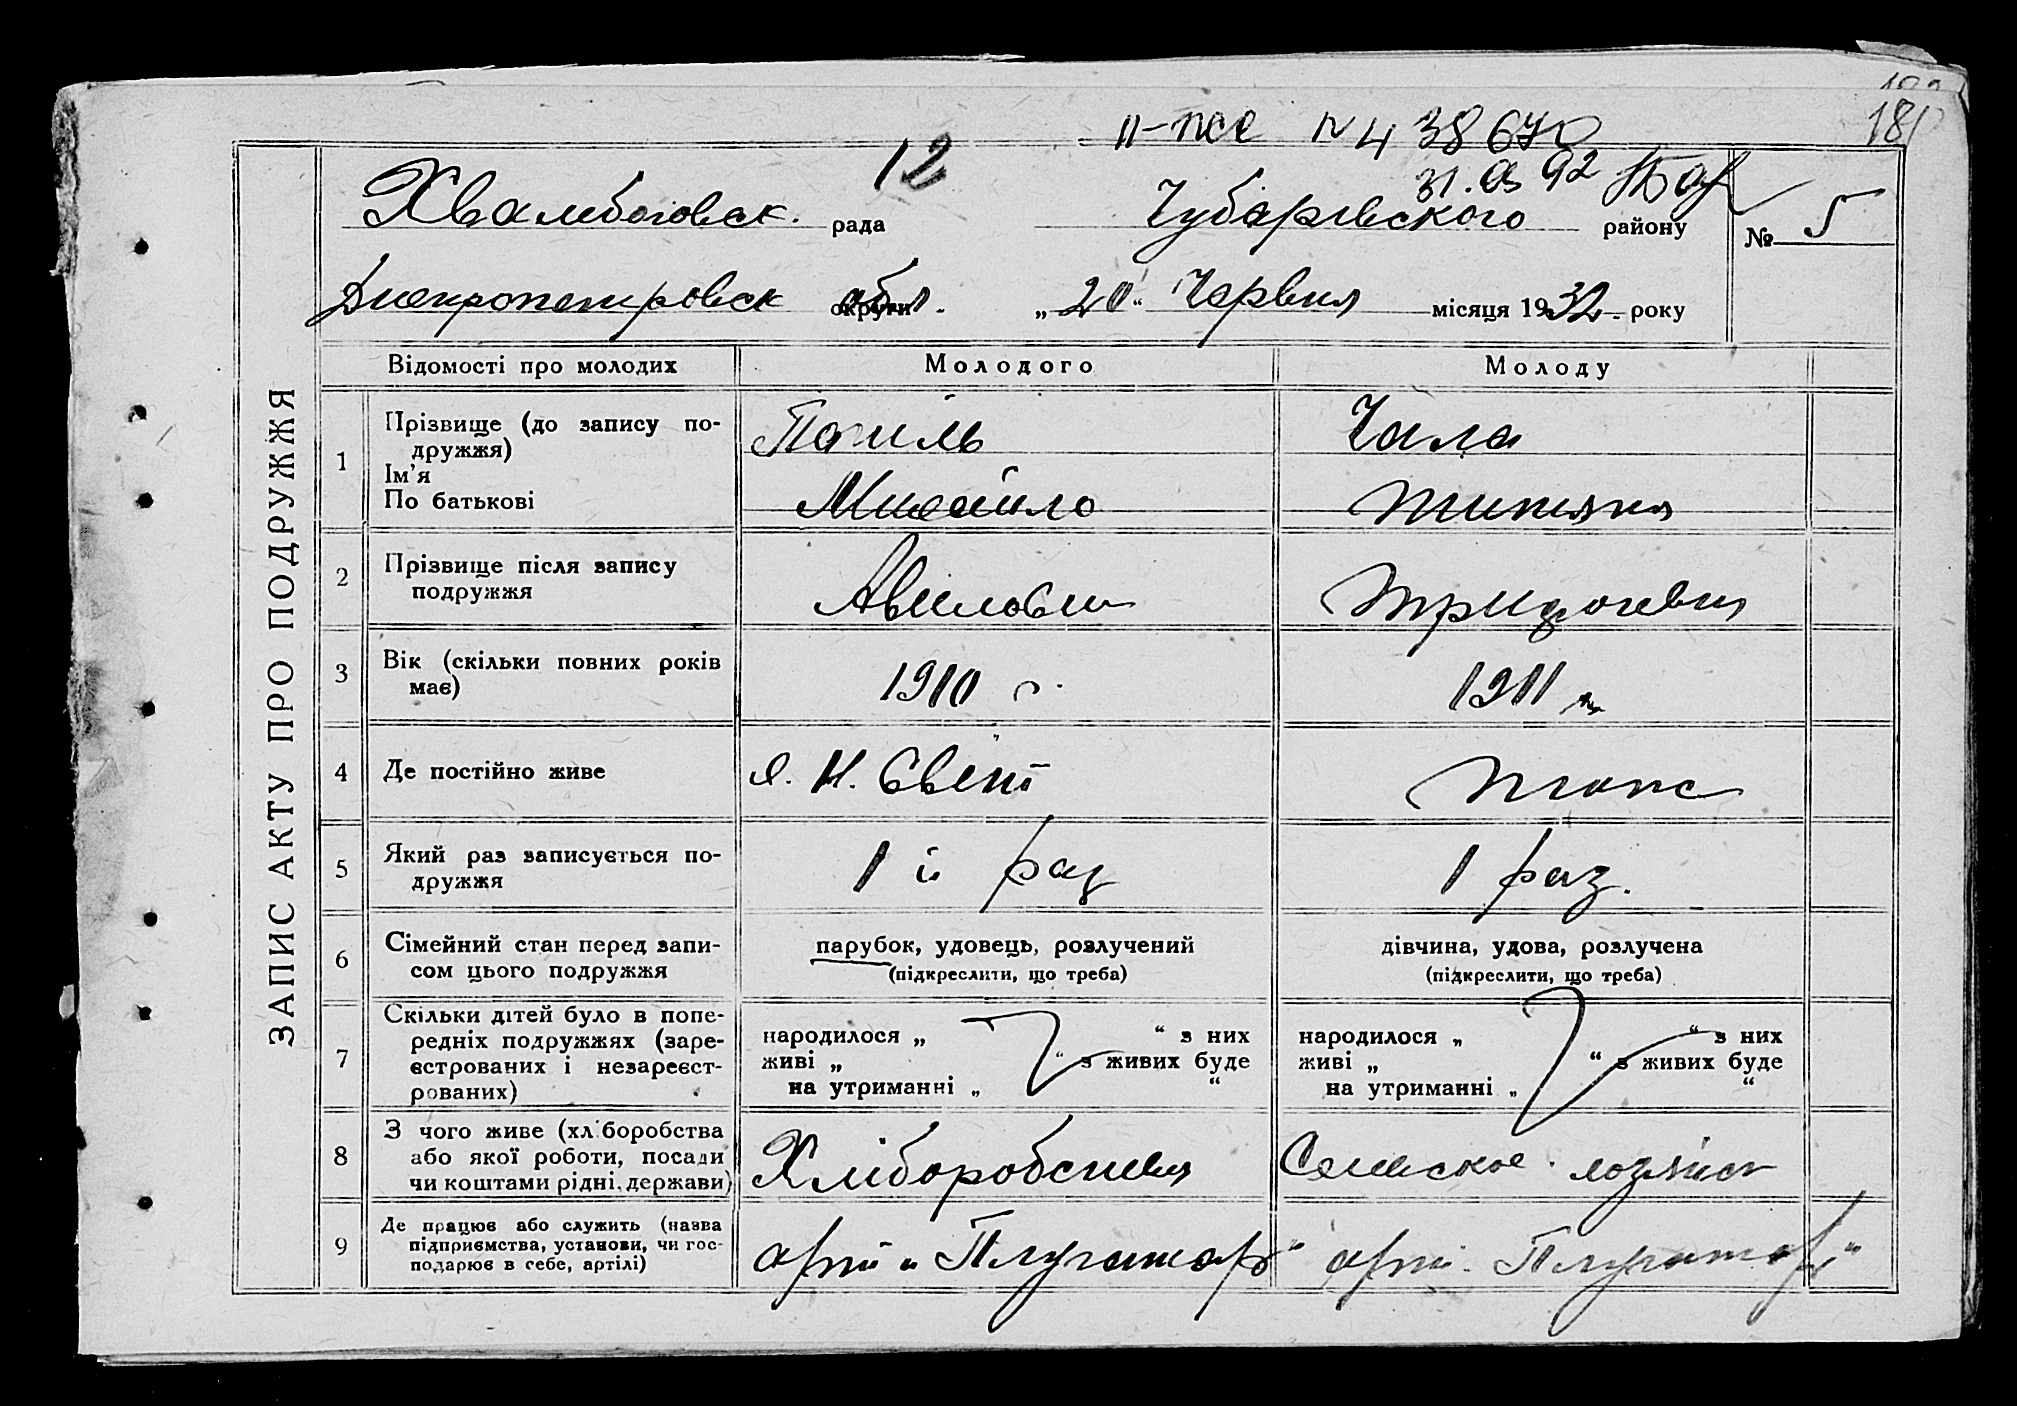 180
ІІ-ПСС № 438670
12
31.03 92
Хвалебоговск. рада Чубарівского району № 5
Днепропетровск округи обл. „20“ Червня місяця 1932 року
ЗАПИС АКТУ ПРО ПОДРУЖЖЯ
Відомості про молодих Молодого Молоду
1 Прізвище (до запису по-
дружжя)
Ім'я
По батькові
Чала
Михайло
2 Прізвище після запису
подружжя
3 Вік (скільки повних років
має)
1910 г. 1911
4 Де постійно живе
5 Який раз записується по-
дружжя
1й раз 1 раз.
6 Сімейний стан перед запи-
сом цього подружжя
парубок, удовець, розлучений дівчина, удова, розлучена
(підкреслити, що треба) (підкреслити, що треба)
7 Скільки дітей було в попе-
редніх подружжях (заре-
єстрованих і незареєст-
рованих)
народилося „ “ з них народилося „ “ з них
живі „ “ з живих буде живі „ “ з живих буде
на утриманні „ “ на утриманні „ “
8 З чого живе (хліборобства
або якої роботи, посади
чи коштами рідні, держави)
Хліборобства Сельское хозяйст
9 Де працює або служить (назва
підприємства, установи, чи гос-
подарює в себе, артілі)
арті „Плугатар“ арті. Плугатар“